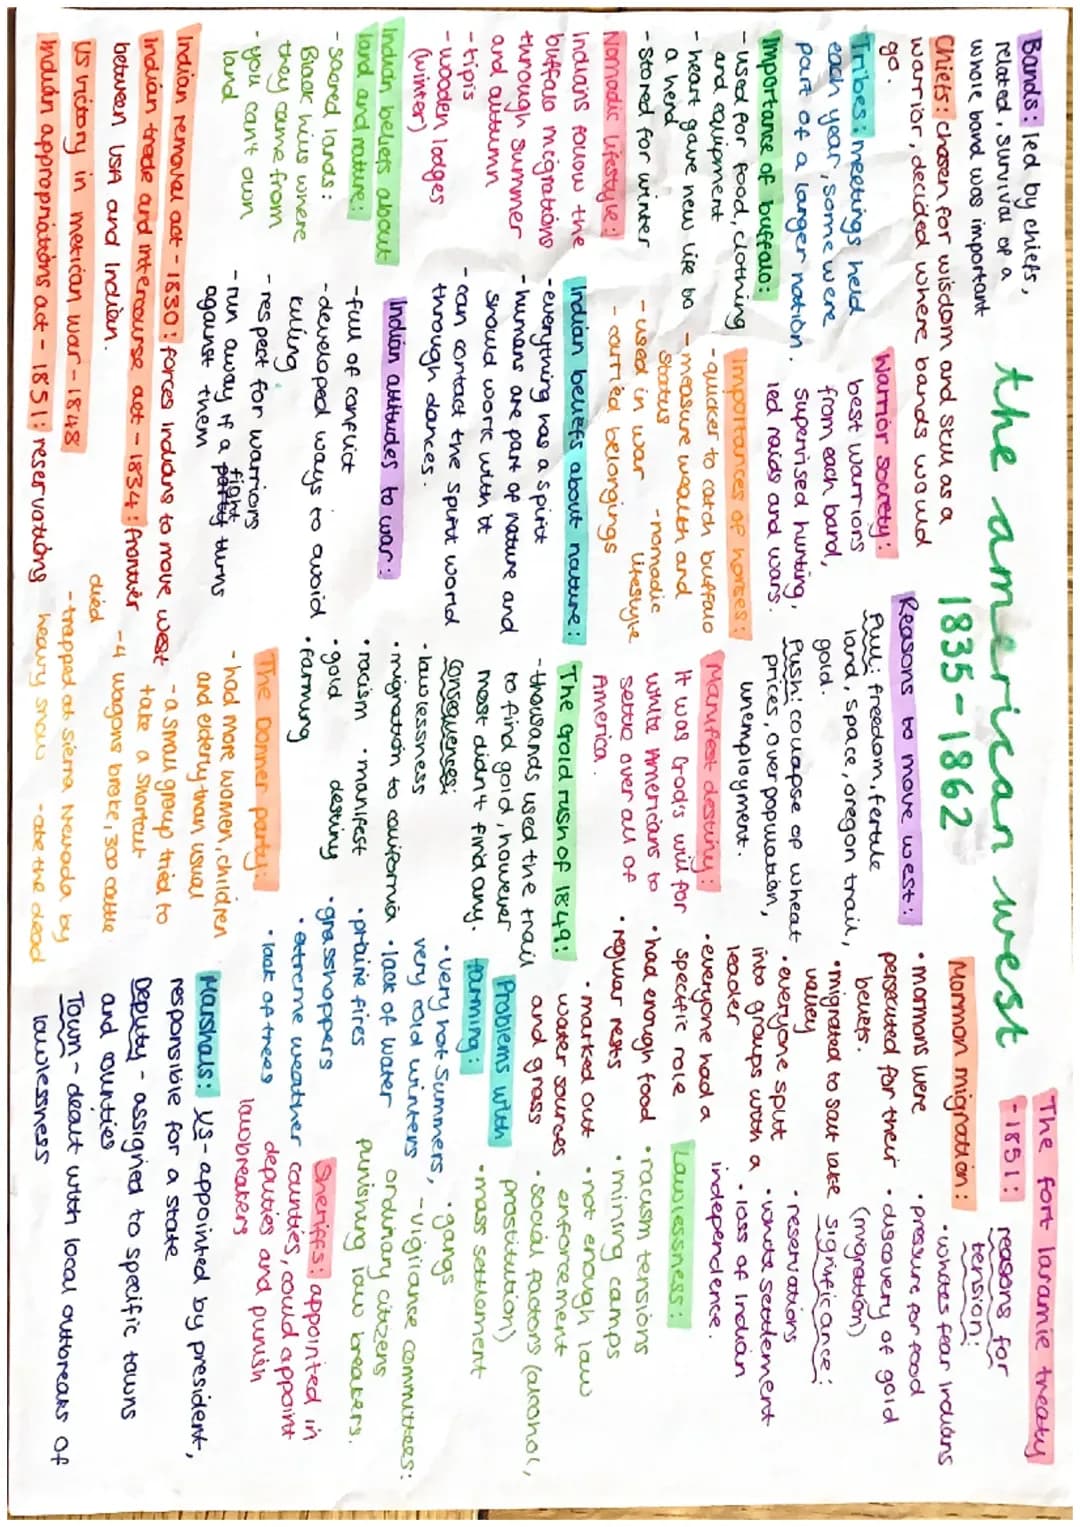 the american west
1835-1862
Bands: led by chiefs,
related, survival of a
whole band was important
Chiefs: chosen for wisdom and skill as a
warrior, decided where bands would
go.
Tribes: meetings held
each year, some were
part of a larger nation.
Importance of buffalo:
- used for food, clothing
and equipment
- heart gave new life to
a herd
- stored for winter
Nomadic lifestyle:
Indians follow the
buffalo migrations
through summer
and autumn
- tipis
- wooden lodges
(winter)
Indian beliefs about
land and nature:
- sacred lands:
Black hills where
they came from
- you can't own
land
Warrior society:
best warriors
from each band,
supervised hunting,
led raids and wars.
Importances of horses:
- quicker to catch buffalo
- measure wealth and
status
- used in war
- nomadic
lifestyle
- carried belongings
Indian beliefs about nature:
- everything has a spirit
- humans are part of nature and
should work with it
- can contact the spirit world
through dances.
Indian attitudes to war:
- full of conflict
- developed ways to avoid
killing
- respect for warriors
- run away if a fight turns
against them
Indian removal act - 1830: forces Indians to move west
Indian trade and intercourse act - 1834: frontier
between USA and Indian.
US victory in mexican war - 1848
Indian appropriations act - 1851: reservations
Reasons to move west:
Pull: freedom, fertile
land, space, oregon trail,
gold.
Push: collapse of wheat
prices, overpopulation,
unemployment.
Manifest destiny:
It was God's will for
white Americans to
settle over all of
America.
The Gold rush of 1849:
- thousands used the trail
to find gold, however
most didn't find any.
Consequences:
• lawlessness
• migration to california
• racism
• manifest
destiny
• gold
• farming
The Donner party:
- had more women, children
and elderly than usual
- a small group tried to
take a shortcut
- 4 wagons broke, 300 cattle
died
- trapped at Sierra Nevada by
heavy snow
- ate the dead
Mormon migration:
• mormons were
persecuted for their
beliefs.
• migrated to salt lake
valley
• everyone split
into groups with a
leader
• everyone had a
specific role
• had enough food
• regular rests
• marked out
water sources
and grass
Problems with
farming:
• very hot summers,
very cold winters
• lack of water
• prairie fires
• grasshoppers
• extreme weather
• lack of trees
Marshals: US - appointed by president,
responsible for a state
Deputy - assigned to specific towns
and counties
Town - dealt with local outbreaks of
lawlessness
The fort laramie treaty
- 1851:
reasons for
tension:
• whites fear Indians
• pressure for food
• discovery of gold
(migration)
significance:
• reservations
• white settlement
• loss of Indian
independence.
Lawlessness:
• racism tensions
• mining camps
• not enough law
enforcement
• social factors (alcohol,
prostitution)
• mass settlement
• gangs
- vigilance committees:
ordinary citizens
punishing law breakers.
Sheriffs: appointed in
counties, could appoint
deputies and punish
lawbreakers